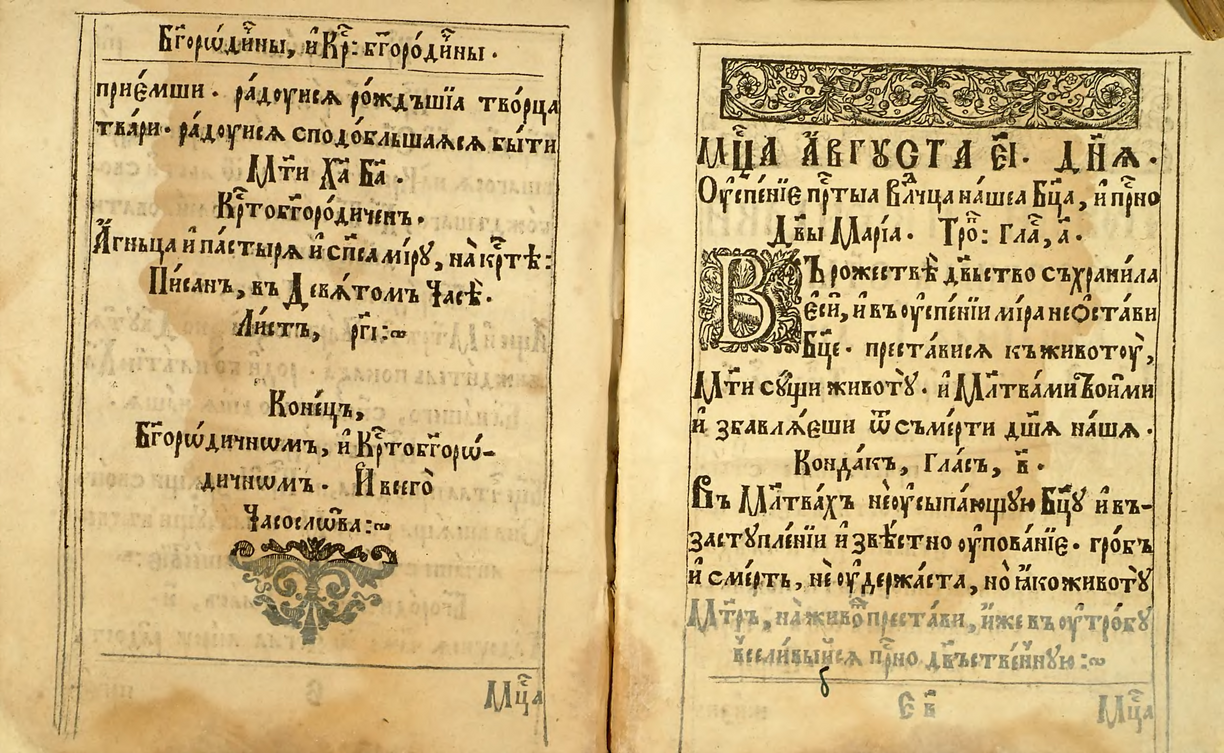 Бг҃оро́дины, и҆ Крⷭ҇: бг҃оро́дины.
прїе́мши. ра́доуисѧ ро́ждъшїа тво́рца
тва́ри. ра́доуисѧ сподо́бльшаѧсѧ бы́ти
Мт҃и Хⷭ҇а Бг҃а.
Крⷭ҇тобг҃оро́диченъ.
А҆́гньца и҆ па́стырѧ и҆ сп҃са мі́рꙋ, на крⷭ҇тѣ:
Пи́санъ, въ Девѧ́томъ Часѣ̀.
Ли́стъ, рг҃і:~
Коне́цъ,
Бг҃оро́дичнѡмъ, и҆ Крⷭ҇тобг҃орѡ́-
дичнѡмъ. И҆ всего̀
Часосло́ва:~
Мцⷭ҇а
Мцⷭ҇А А҆́ВГꙋСТА е҃і. ДН҃Ѧ.
Оу҆спе́нїе прⷭ҇тыа Влⷣчца на́шеа Бц҃а, и҆ прⷭ҇но
Дв҃ы Марі́а. Троⷫ҇: Гла́, а҃.
ВЪ рожествѣ̀ дв҃ьство съхрани́ла
є҆си, и҆ въ оу҆спе́нїи мі́ра не ѡ҆ста́ви
Бц҃е. преста́висѧ къ животоу̀,
Мт҃и сꙋ́щи животꙋ̀. и҆ Мл҃твами Твои́ми
и҆ збавлѧ́еши ѿ съме́рти дш҃ѧ на́шѧ.
Конда́къ, Гла́съ, в҃.
Въ Мл҃тва́хъ неоусыпа́ющꙋю Бц҃ꙋ и҆ въ-
застꙋпле́нїи и҆ звѣ́стно оу҆пова́нїе. гро́бъ
и҆ сме́рть, не оу҆держа́ста, но ꙗ҆́ко животꙋ̀
Мт҃рь, на живоⷮ преста́ви, и҆́же въ оу҆тро́бꙋ
всели́выйсѧ прⷭ҇но дв҃ъстве́ннꙋю:~
Є в҃
Мцⷭ҇а